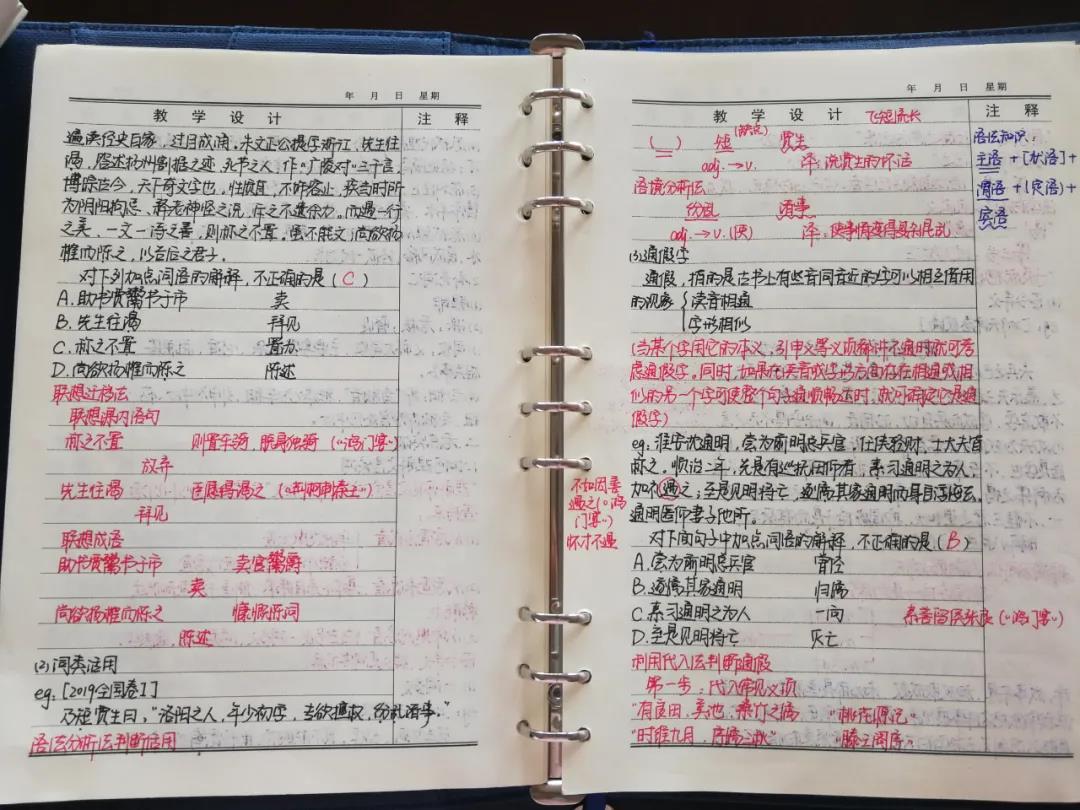 年 月 日 星期
教 学 设 计 注 释
遍读经史百家,过目成诵。朱文正公提学浙江,先生往
谒,答述扬州割据之迹,死节之人,作《广陵对》三千言,
博综古今,天下奇文学也。性质直,不饰容止,疾当时所
为阴阳拘忌、释老神怪之说,斥之不遗余力。而遇一行
之美,一文一诗之善,则称之不置。虽不能文,尚欲扬
榷而陈之,以告后之君子。
对下列加点词语的解释,不正确的是(C)
A.助书贾鬻书于市 卖
B.先生往谒 拜见
C.称之不置 置办
D.尚欲扬榷而陈之 陈述
联想迁移法
联想课内语句
称之不置 则置车骑,脱身独骑(《鸿门宴》)
放弃
先生往谒 臣愿得谒之(《荆轲刺秦王》)
拜见
联想成语
助书贾鬻书于市 卖官鬻爵
卖
尚欲扬榷而陈之 慷慨陈词
陈述
(2)词类活用
eg.[2019全国卷I]
乃短贾生曰,"洛阳之人,年少初学,专欲擅权,纷乱诸事。"
语法分析法判断活用
年 月 日 星期
教 学 设 计 飞短流长 注 释
( ) 短(缺点) 贾生
adj.→v. 译:说贾生的坏话
语境分析法
纷乱 诸事
adj.→v.(使) 译:使事情变得复杂混乱
(3)通假字
通假,指的是古书上有些音同音近的字可以相互借用
的现象 读音相通
字形相似
(当某个字用它的本义、引申义等义项解释不通时就可考
虑通假字。同时,如果在读音或字形方面存在相通或相
似的另一个字可使整个句子通顺畅达时,就可确定它是通
假字)
eg:淮安沈通明,尝为前明总兵官,任侠轻财,士大夫皆
称之。顺治二年,先是有巡抚田仰者,素习通明之为人,
加礼遇之;至是见明将亡,遂属其家通明而身自浮海去。
通明匿仰妻子他所。
对下面句子中加点词语的解释,不正确的是(B)
A.尝为前明总兵官 曾经
B.遂属其家通明 归属
C.素习通明之为人 一向 素善留侯张良(《鸿门宴》)
D.至是见明将亡 灭亡
利用代入法判断通假
第一步:代入常见义项
"有良田、美池、桑竹之属" 《桃花源记》
"时维九月,序属三秋" 《滕王阁序》
不如因善
遇之(《鸿
门宴》)
怀才不遇
语法知识:
主语+[状语]+
谓语+(定语)+
宾语